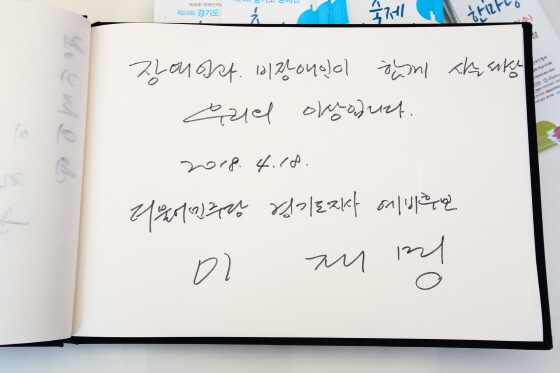 제24회 경기도
축제
한마당
장애인과 비장애인이 함께 사는세상
우리의 이상입니다.
2018. 4. 18.
더불어민주당 경기도지사 예비후보
이 재명